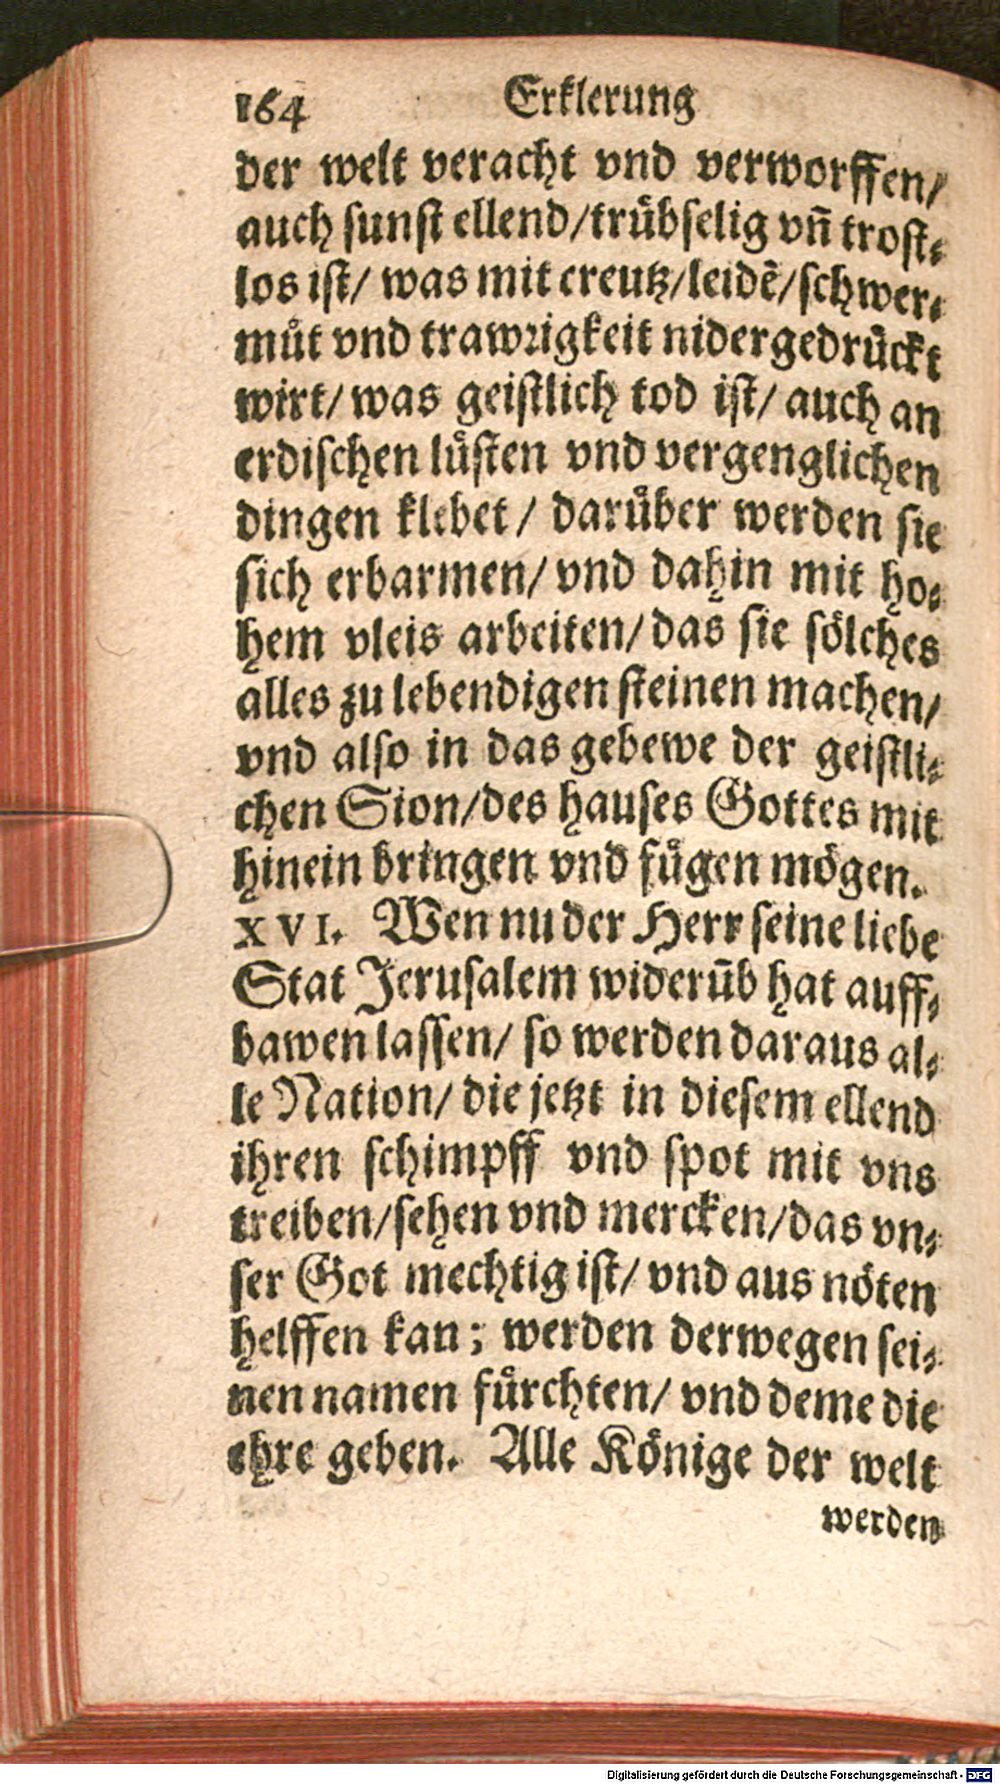 164 Erklerung
der welt veracht vnd verworffen/
auch sunst ellend/trůbselig vñ trost⸗
los ist/ was mit creutz/leidẽ/schwer⸗
můt vnd trawrigkeit nidergedrůckt
wirt/ was geistlich tod ist/ auch an
erdischen lůsten vnd vergenglichen
dingen klebet/ darůber werden sie
sich erbarmen/ vnd dahin mit ho⸗
hem vleis arbeiten/ das sie sölches
alles zu lebendigen steinen machen/
vnd also in das gebewe der geistli⸗
chen Sion/des hauses Gottes mit
hinein bringen vnd fůgen mögen.
XVI. Wen nu der Herr seine liebe
Stat Jerusalem widerüb hat auff⸗
bawen lassen/ so werden daraus al⸗
le Nation/ die jetzt in diesem ellend
ihren schimpff vnd spot mit vns
treiben/sehen vnd mercken/das vn⸗
ser Got mechtig ist/ vnd aus nöten
helffen kan; werden derwegen sei⸗
nen namen fůrchten/ vnd deme die
ehre geben. Alle Könige der welt
werden
Digitalisierung gefördert durch die Deutsche Forschungsgemeinschaft - DFG